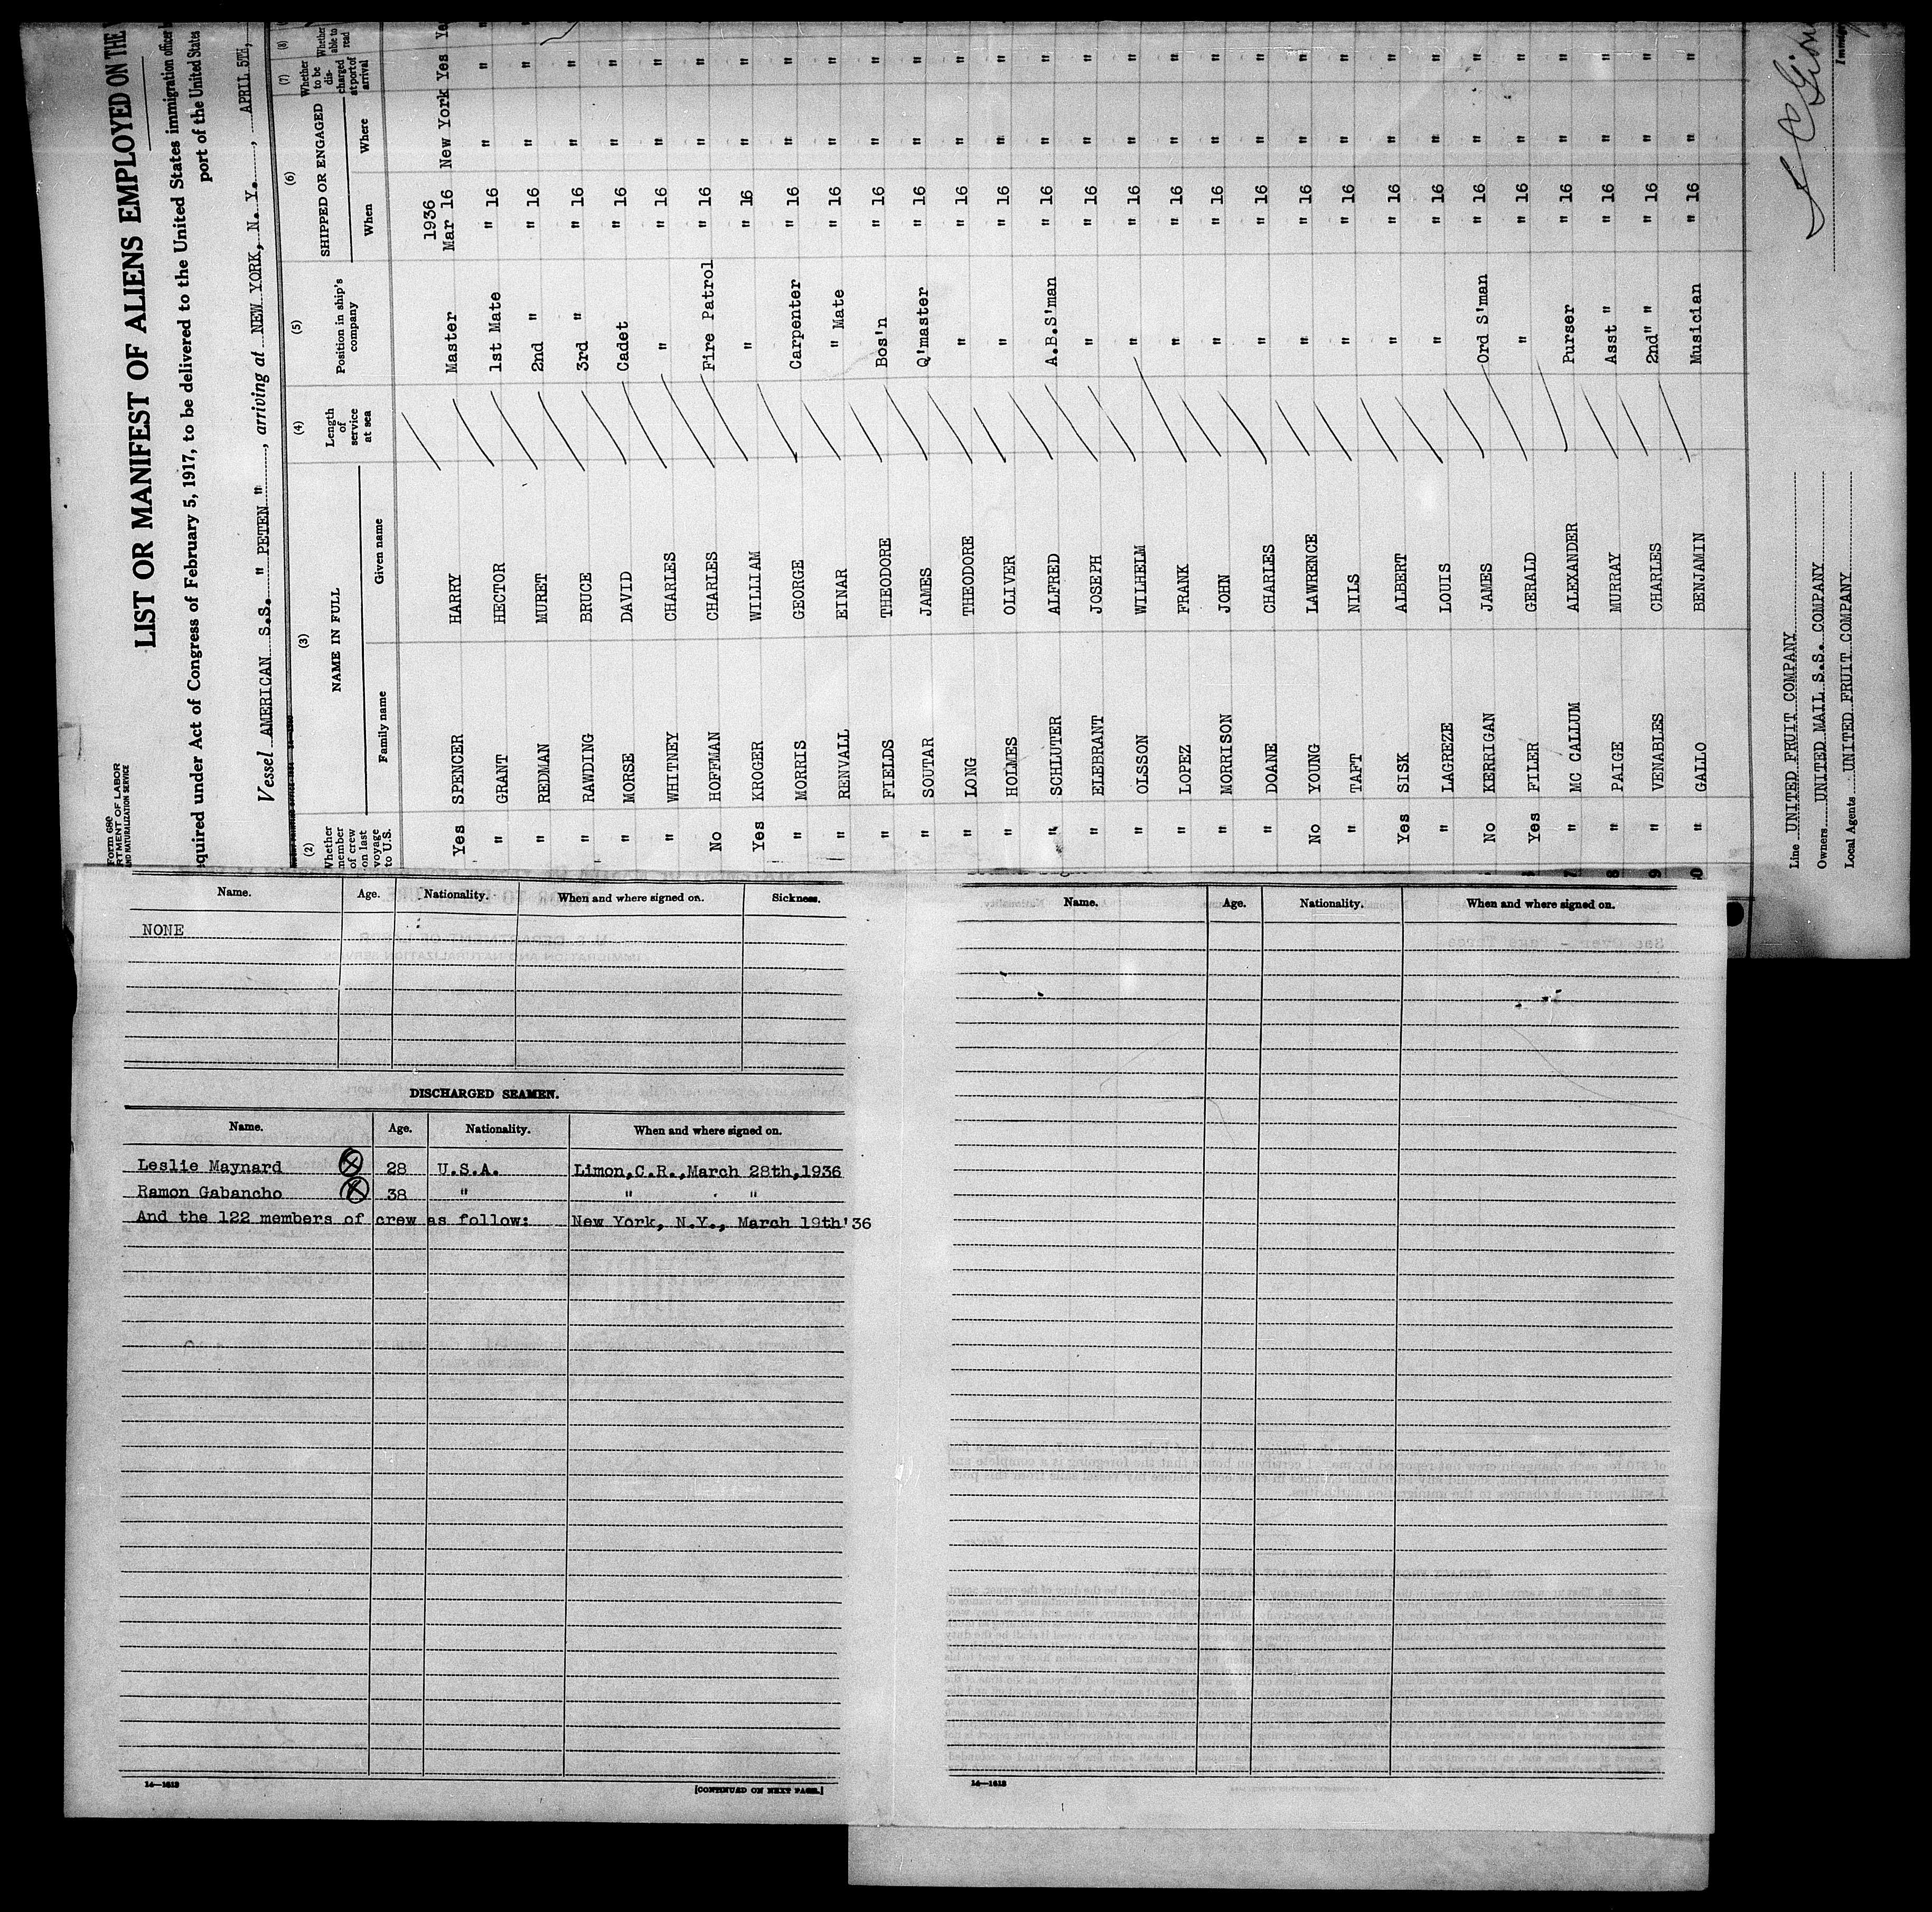 Form 680
RTMENT OF LABOR
AND NATURALIZATION SERVICE
LIST OR MANIFEST OF ALIENS EMPLOYED ON THE
equired under Act of Congress of February 5, 1917, to be delivered to the United States immigration officer
port of the United States
Vessel AMERICAN S.S. " PETEN ", arriving at NEW YORK, N. Y., APRIL 5TH,
(2) (3) (4) (5) (6) (7) (8)
Whether member of crew on last voyage to U.S. NAME IN FULL Length of service at sea Position in ship's company SHIPPED OR ENGAGED Whether to be discharged at port of arrival Whether able to read
Family name Given name When Where
1936
Yes SPENCER HARRY Master Mar 16 New York Yes
" GRANT HECTOR 1st Mate " 16 " "
" REDMAN MURET 2nd " " 16 " "
" RAWDING BRUCE 3rd " " 16 " "
" MORSE DAVID Cadet " 16 " "
" WHITNEY CHARLES " " 16 " "
No HOFFMAN CHARLES Fire Patrol " 16 " "
Yes KROGER WILLIAM " " 16 " "
" MORRIS GEORGE Carpenter " 16 " "
" RENVALL EINAR " Mate " 16 " "
" FIELDS THEODORE Bos'n " 16 " "
" SOUTAR JAMES Q'master " 16 " "
" LONG THEODORE " " 16 " "
" HOLMES OLIVER " " 16 " "
" SCHLUTER ALFRED A.B.S'man " 16 " "
" ELEBRANT JOSEPH " " 16 " "
" OLSSON WILHELM " " 16 " "
" LOPEZ FRANK " " 16 " "
" MORRISON JOHN " " 16 " "
" DOANE CHARLES " " 16 " "
No YOUNG LAWRENCE " " 16 " "
" TAFT NILS " " 16 " "
Yes SISK ALBERT " " 16 " "
" LAGREZE LOUIS " " 16 " "
No KERRIGAN JAMES Ord S'man " 16 " "
Yes FILER GERALD " " 16 " "
7 " MC CALLUM ALEXANDER Purser " 16 " "
8 " PAIGE MURRAY Asst " " 16 " "
9 " VENABLES CHARLES 2nd" " " 16 " "
0 " GAILO BENJAMIN Musician " 16 " "
Line UNITED FRUIT COMPANY
Owners UNITED MAIL S.S. COMPANY
Local Agents UNITED FRUIT COMPANY
Name. Age. Nationality. When and where signed on. Sickness.
NONE
DISCHARGED SEAMEN.
Name. Age. Nationality. When and where signed on.
Leslie Maynard 28 U.S.A. Limon,C.R.,March 28th,1936
Ramon Gabancho 38 " " "
And the 122 members of crew as follow: New York, N.Y., March 19th'36
14—1613
[CONTINUED ON NEXT PAGE.]
Name. Age. Nationality. When and where signed on.
14—1613